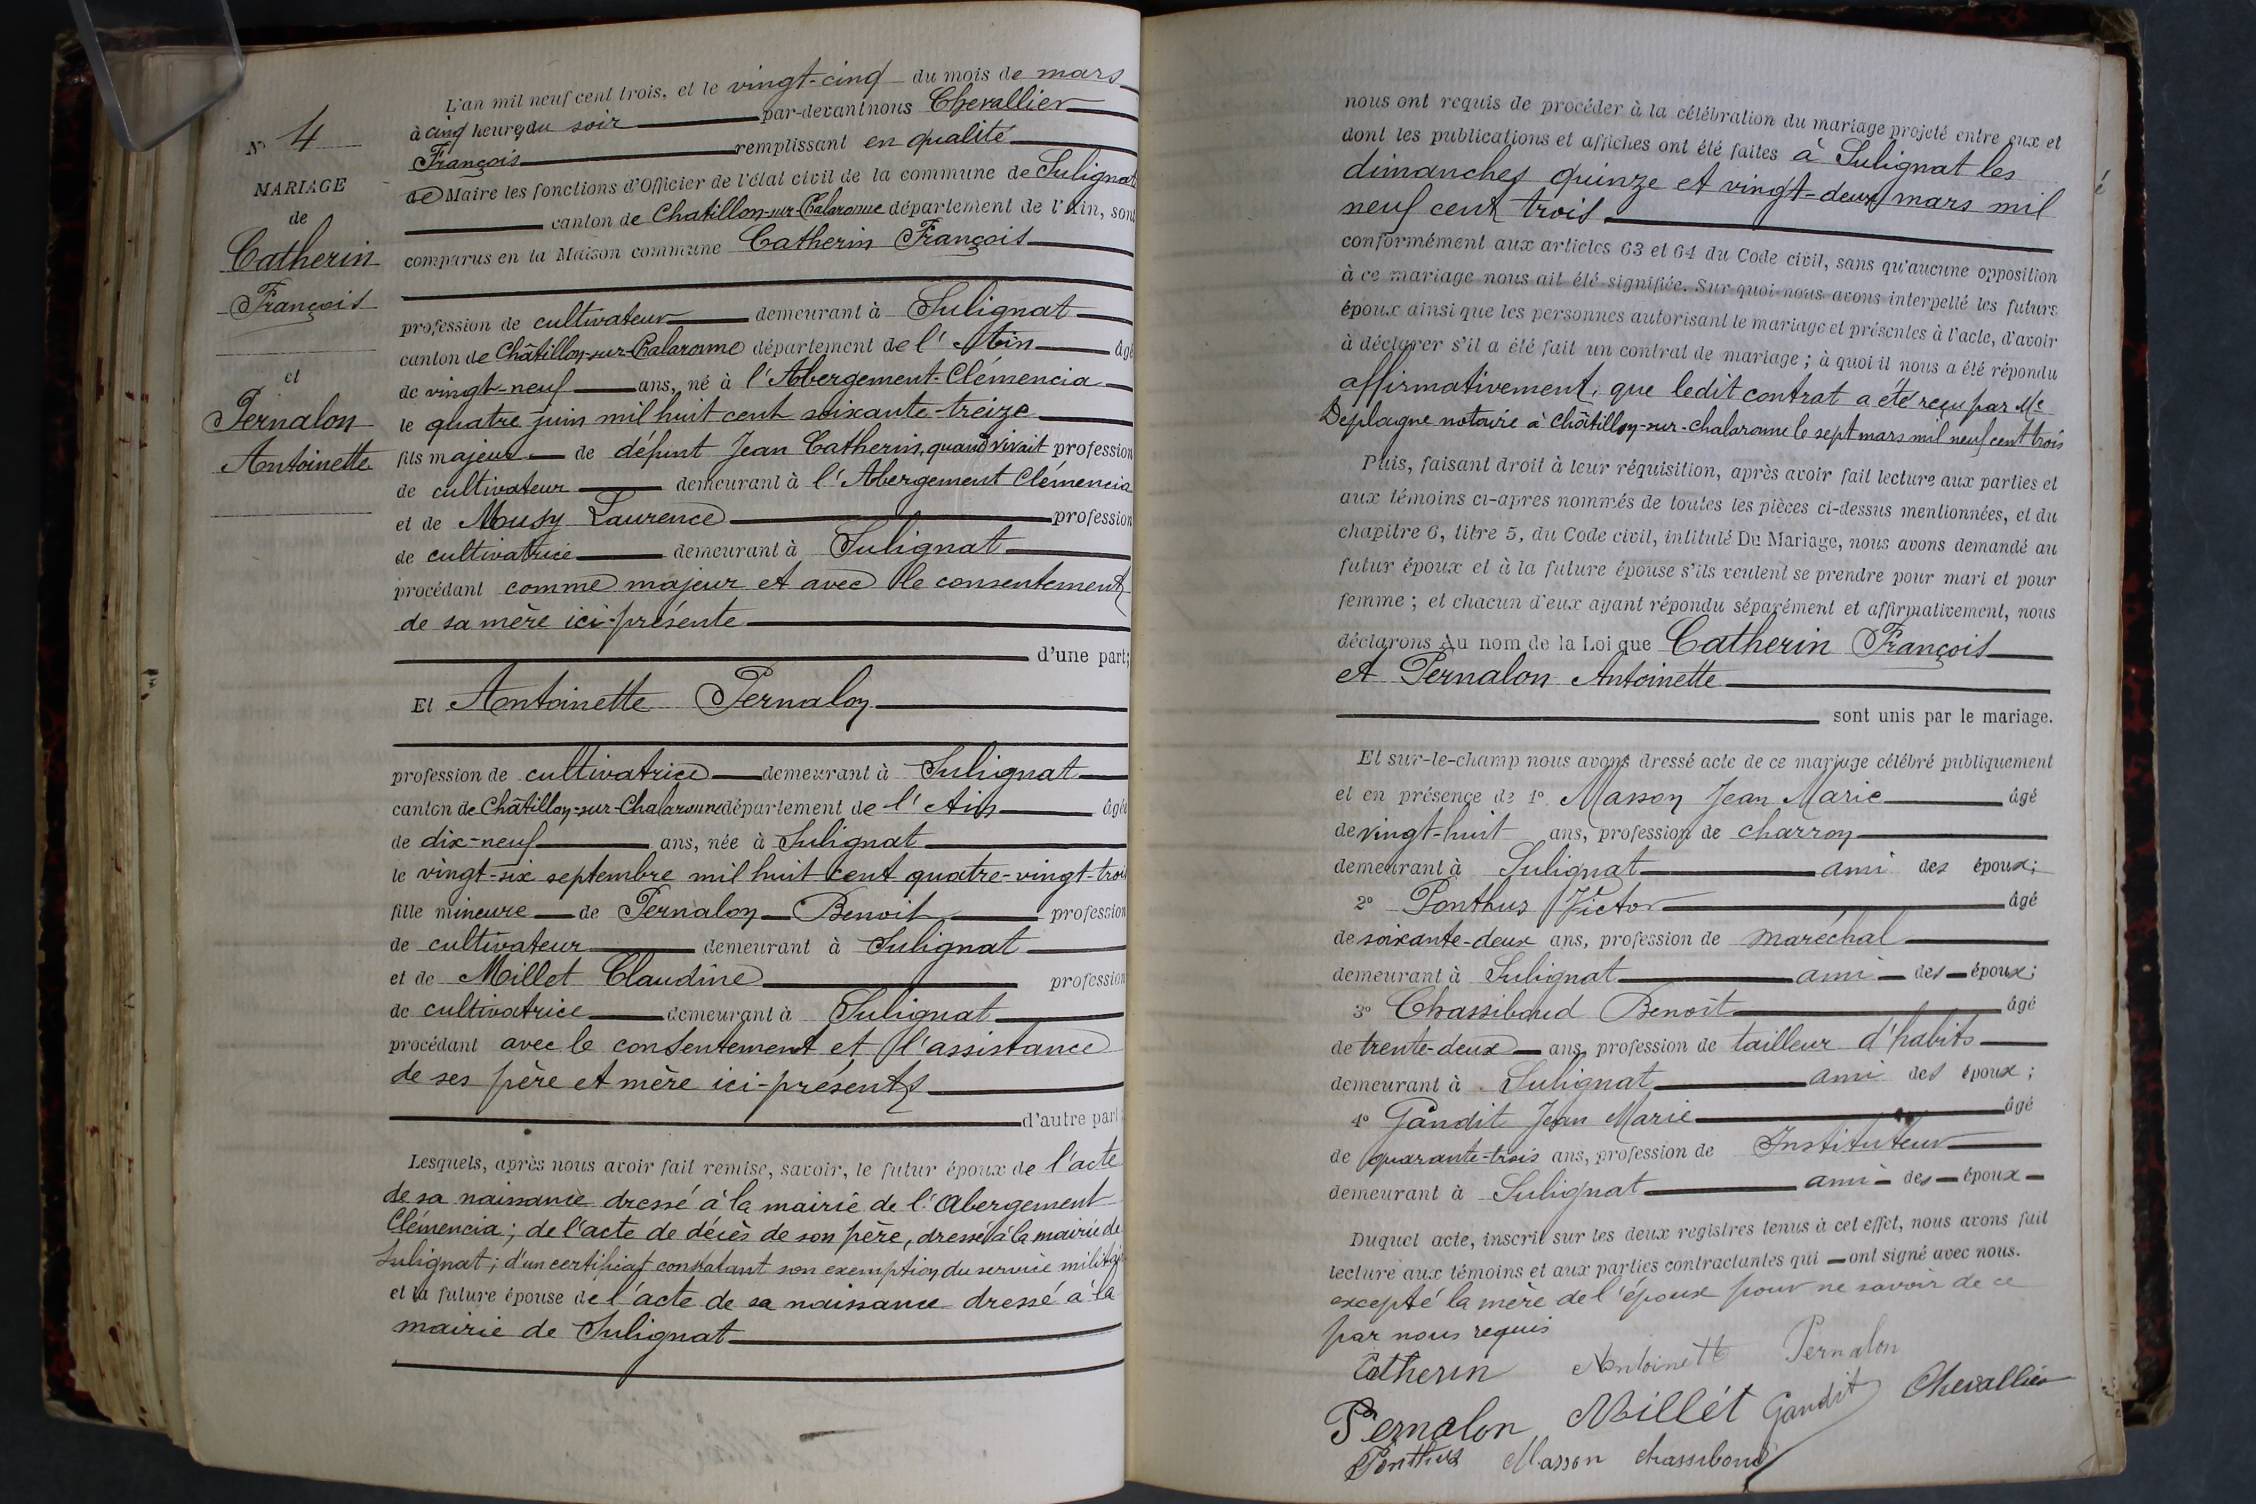 N° 4
MARIAGE
de
Catherin
François
et
Pernalon
Antoinette
L'an mil neuf cent trois, et le vingt-cinq du mois de mars
à cinq heures du soir par-devant nous Chevallier
François remplissant en qualité
de Maire les fonctions d'Officier de l'état civil de la commune de Sulignat
canton de Chatillon-sur-Chalaronne département de l'Ain, sont
comparus en la Maison commune Catherin François
profession de cultivateur demeurant à Sulignat
canton de Châtillon-sur-Chalaronne département de l'Ain âgé
de vingt-neuf ans, né à l'Abergement-Clémencia
le quatre juin mil huit cent soixante-treize
fils majeur de défunt Jean Catherin, quand vivait profession
de cultivateur demeurant à l'Abergement Clémencia
et de Musy Laurence profession
de cultivatrice demeurant à Sulignat
procédant comme majeur et avec le consentement
de sa mère ici-présente
d'une part;
Et Antoinette Pernalon
profession de cultivatrice demeurant à Sulignat
canton de Châtillon-sur-Chalaronne département de l'Ain âgée
de dix-neuf ans, née à Sulignat
le vingt-six septembre mil huit cent quatre-vingt-trois
fille mineure de Pernalon Benoit profession
de cultivateur demeurant à Sulignat
et de Millet Claudine profession
de cultivatrice demeurant à Sulignat
procédant avec le consentement et l'assistance
de ses père et mère ici-présents
d'autre part
Lesquels, après nous avoir fait remise, savoir, le futur époux de l'acte
de sa naissance dressé à la mairie de l'Abergement
Clémencia; de l'acte de décès de son père, dressé à la mairie de
Sulignat; d'un certificat constatant son exemption du service militaire
et la future épouse de l'acte de sa naissance dressé à la
mairie de Sulignat
nous ont requis de procéder à la célébration du mariage projeté entre eux et
dont les publications et affiches ont été faites à Sulignat les
dimanches quinze et vingt-deux mars mil
neuf cent trois
conformément aux articles 63 et 64 du Code civil, sans qu'aucune opposition
à ce mariage nous ait été signifiée. Sur quoi nous avons interpellé les futurs
époux ainsi que les personnes autorisant le mariage et présentes à l'acte, d'avoir
à déclarer s'il a été fait un contrat de mariage; à quoi il nous a été répondu
affirmativement, que ledit contrat a été reçu par Me
Deplagne notaire à Châtillon-sur-chalaronne le sept mars mil neuf cent trois
Puis, faisant droit à leur réquisition, après avoir fait lecture aux parties et
aux témoins ci-après nommés de toutes les pièces ci-dessus mentionnées, et du
chapitre 6, titre 5, du Code civil, intitulé Du Mariage, nous avons demandé au
futur époux et à la future épouse s'ils veulent se prendre pour mari et pour
femme; et chacun d'eux ayant répondu séparément et affirmativement, nous
déclarons Au nom de la Loi que Catherin François
et Pernalon Antoinette
sont unis par le mariage.
Et sur-le-champ nous avons dressé acte de ce mariage célébré publiquement
et en présence de 1° Masson Jean Marie âgé
de vingt-huit ans, profession de charron
demeurant à Sulignat ami des époux;
2° Ponthus Victor âgé
de soixante-deux ans, profession de maréchal
demeurant à Sulignat ami des époux;
3° Chassiboud Benoît âgé
de trente-deux ans, profession de tailleur d'habits
demeurant à Sulignat ami des époux;
4° Gandit Jean Marie âgé
de quarante-trois ans, profession de Instituteur
demeurant à Sulignat ami des époux
Duquel acte, inscrit sur les deux registres tenus à cet effet, nous avons fait
lecture aux témoins et aux parties contractantes qui ont signé avec nous.
excepté la mère de l'époux pour ne savoir de ce
par nous requis
Catherin Antoinette Pernalon
Pernalon Millet Gandit Chevallier
Ponthus Masson Chassiboud